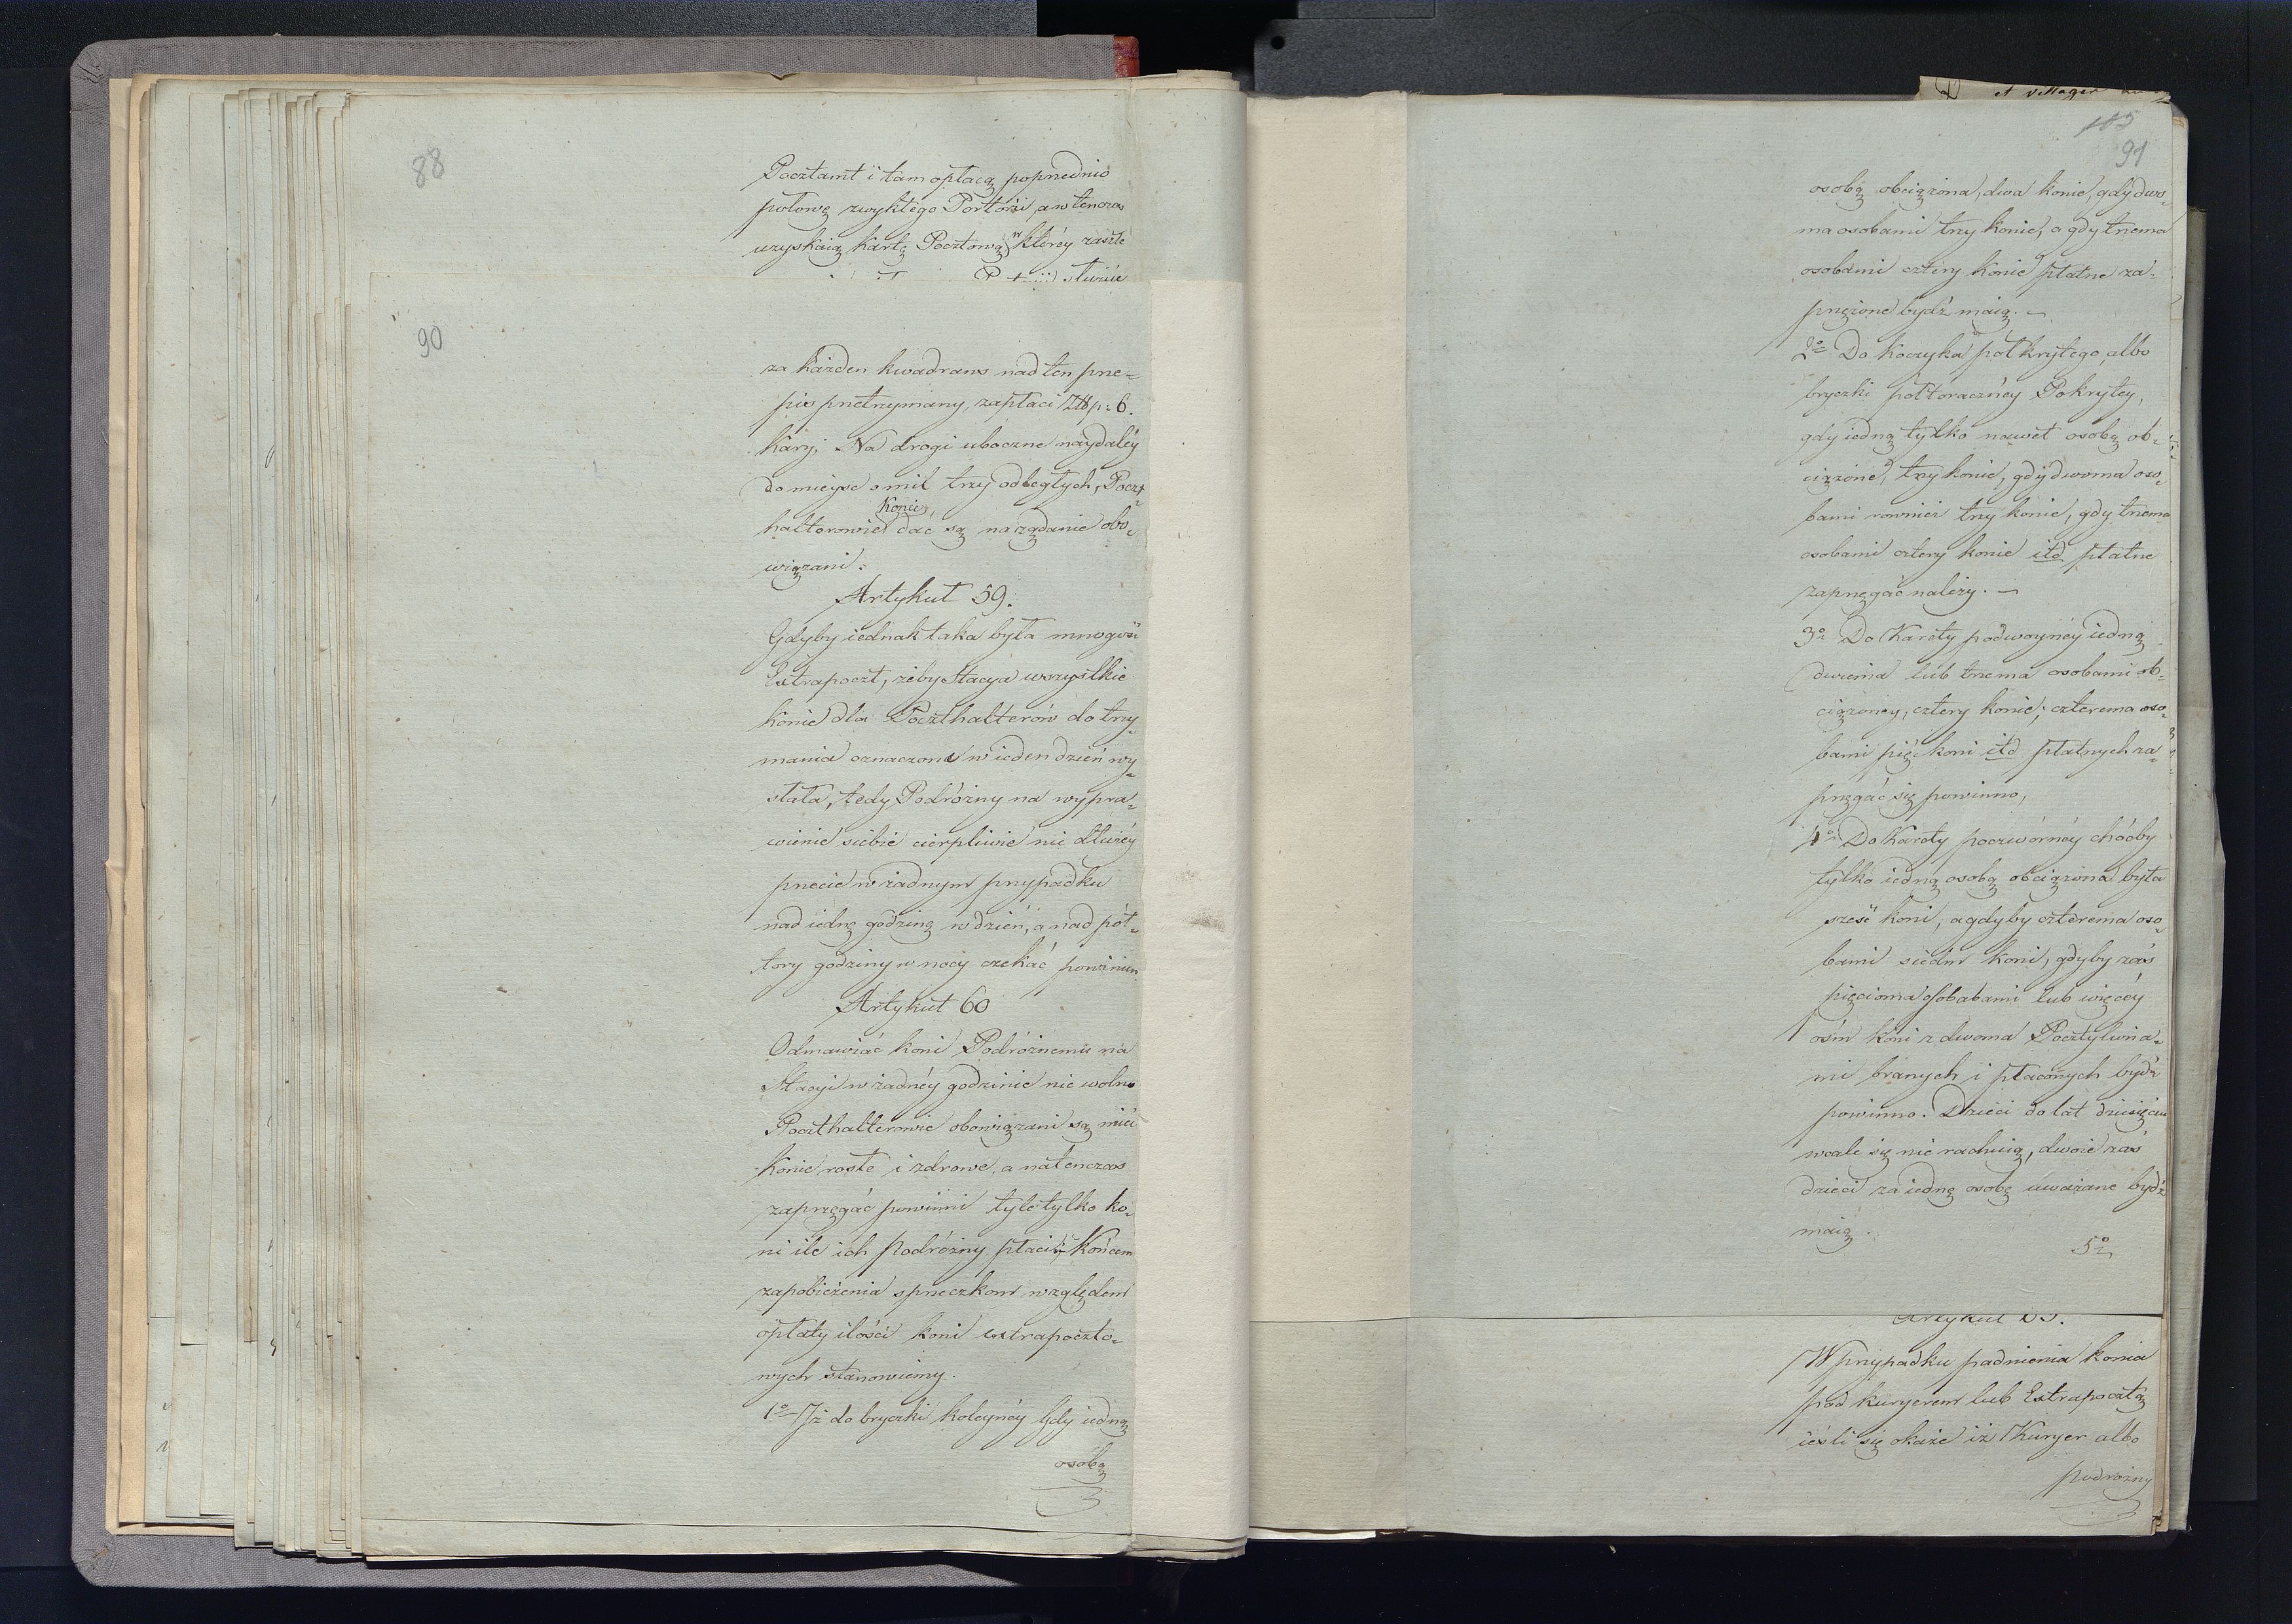 88
Pocztamt i tam opłacą poprzednio
połowę zwykłego Portorii, a w tenczas
uzyskaią kartę Pocztową w którey zaszłe
90
za każden kwadrans nad ten prze=
pis przetrzymany, zapłaci Złłp: 6.
kary; Na drogi uboczne naydaléy
do mieysc o mil trzy odległych, Poczt=
halterowie konie dać są na żądanie obo=
wiązani.
Artykuł 59.
Gdyby iednak taka była mnogość
Extrapoczt, żeby Stacya wszystkie
konie dla Poczthalterów do trzy=
mania oznaczone w ieden dzień wy=
słała, tedy Podróżny na wypra=
wienie siebie cierpliwie nie dłużéy
przecie w żadnym przypadku
nad iednę godzinę w dzień, a nad pół=
tory godziny w nocy czekać powinien
Artykuł 60
Odmawiać koni Podróżnemu na
Stacyi w żadnéy godzinie nie wolno
Poczthalterowie obowiązani są mieć
konie rosłe i zdrowe, a natenczas
zaprzęgać powinni tyle tylko ko=
ni ile ich Podróżny płaci. Końcem
zapobieżenia sprzeczkom względem
opłaty ilości koni extrapoczto=
wych stanowiemy.
1o Iż do bryczki koleynéy Gdy iedną
osobą
105
91
et villages
osobą obciążona, dwa konie, gdy dwo=
ma osobami trzy konie, a gdy trzema
osobami cztery konie płatne za=
przężone bydź maią. —
2o Do Koczyka pół krytego, albo
bryczki półtoracznéy Pokrytey,
gdy iedną tylko nawet osobą ob=
ciążone, trzy konie, gdy dwoma oso=
bami rownież trzy konie, gdy trzema
osobami cztery konie itd płatne
zaprzęgać należy. —
3o Do Karety podwoynéy iedną
dwiema lub trzema osobami ob=
ciążoney, cztery konie, czterema oso=
bami pięć koni itd płatnych za=
przęgać się powinno,
4o Do Karety poczwórnéy choćby
tylko iedną osobą obciążona była
sześć koni, a gdyby czterema oso=
bami siedm koni, gdyby zaś
pięcioma osobabami lub więcéy
ośm koni z dwoma Pocztylionia=
mi branych i płaconych bydź
powinno. Dzieci do lat dziesięciu
wcale się nie rachuią, dwoie zaś
dzieci za iednę osobę uważane bydź
maią.
5o
W przypadku padnienia konia
pod kuryerem lub Extrapocztą
ieśli się okaże iż Kuryer albo
podróżny